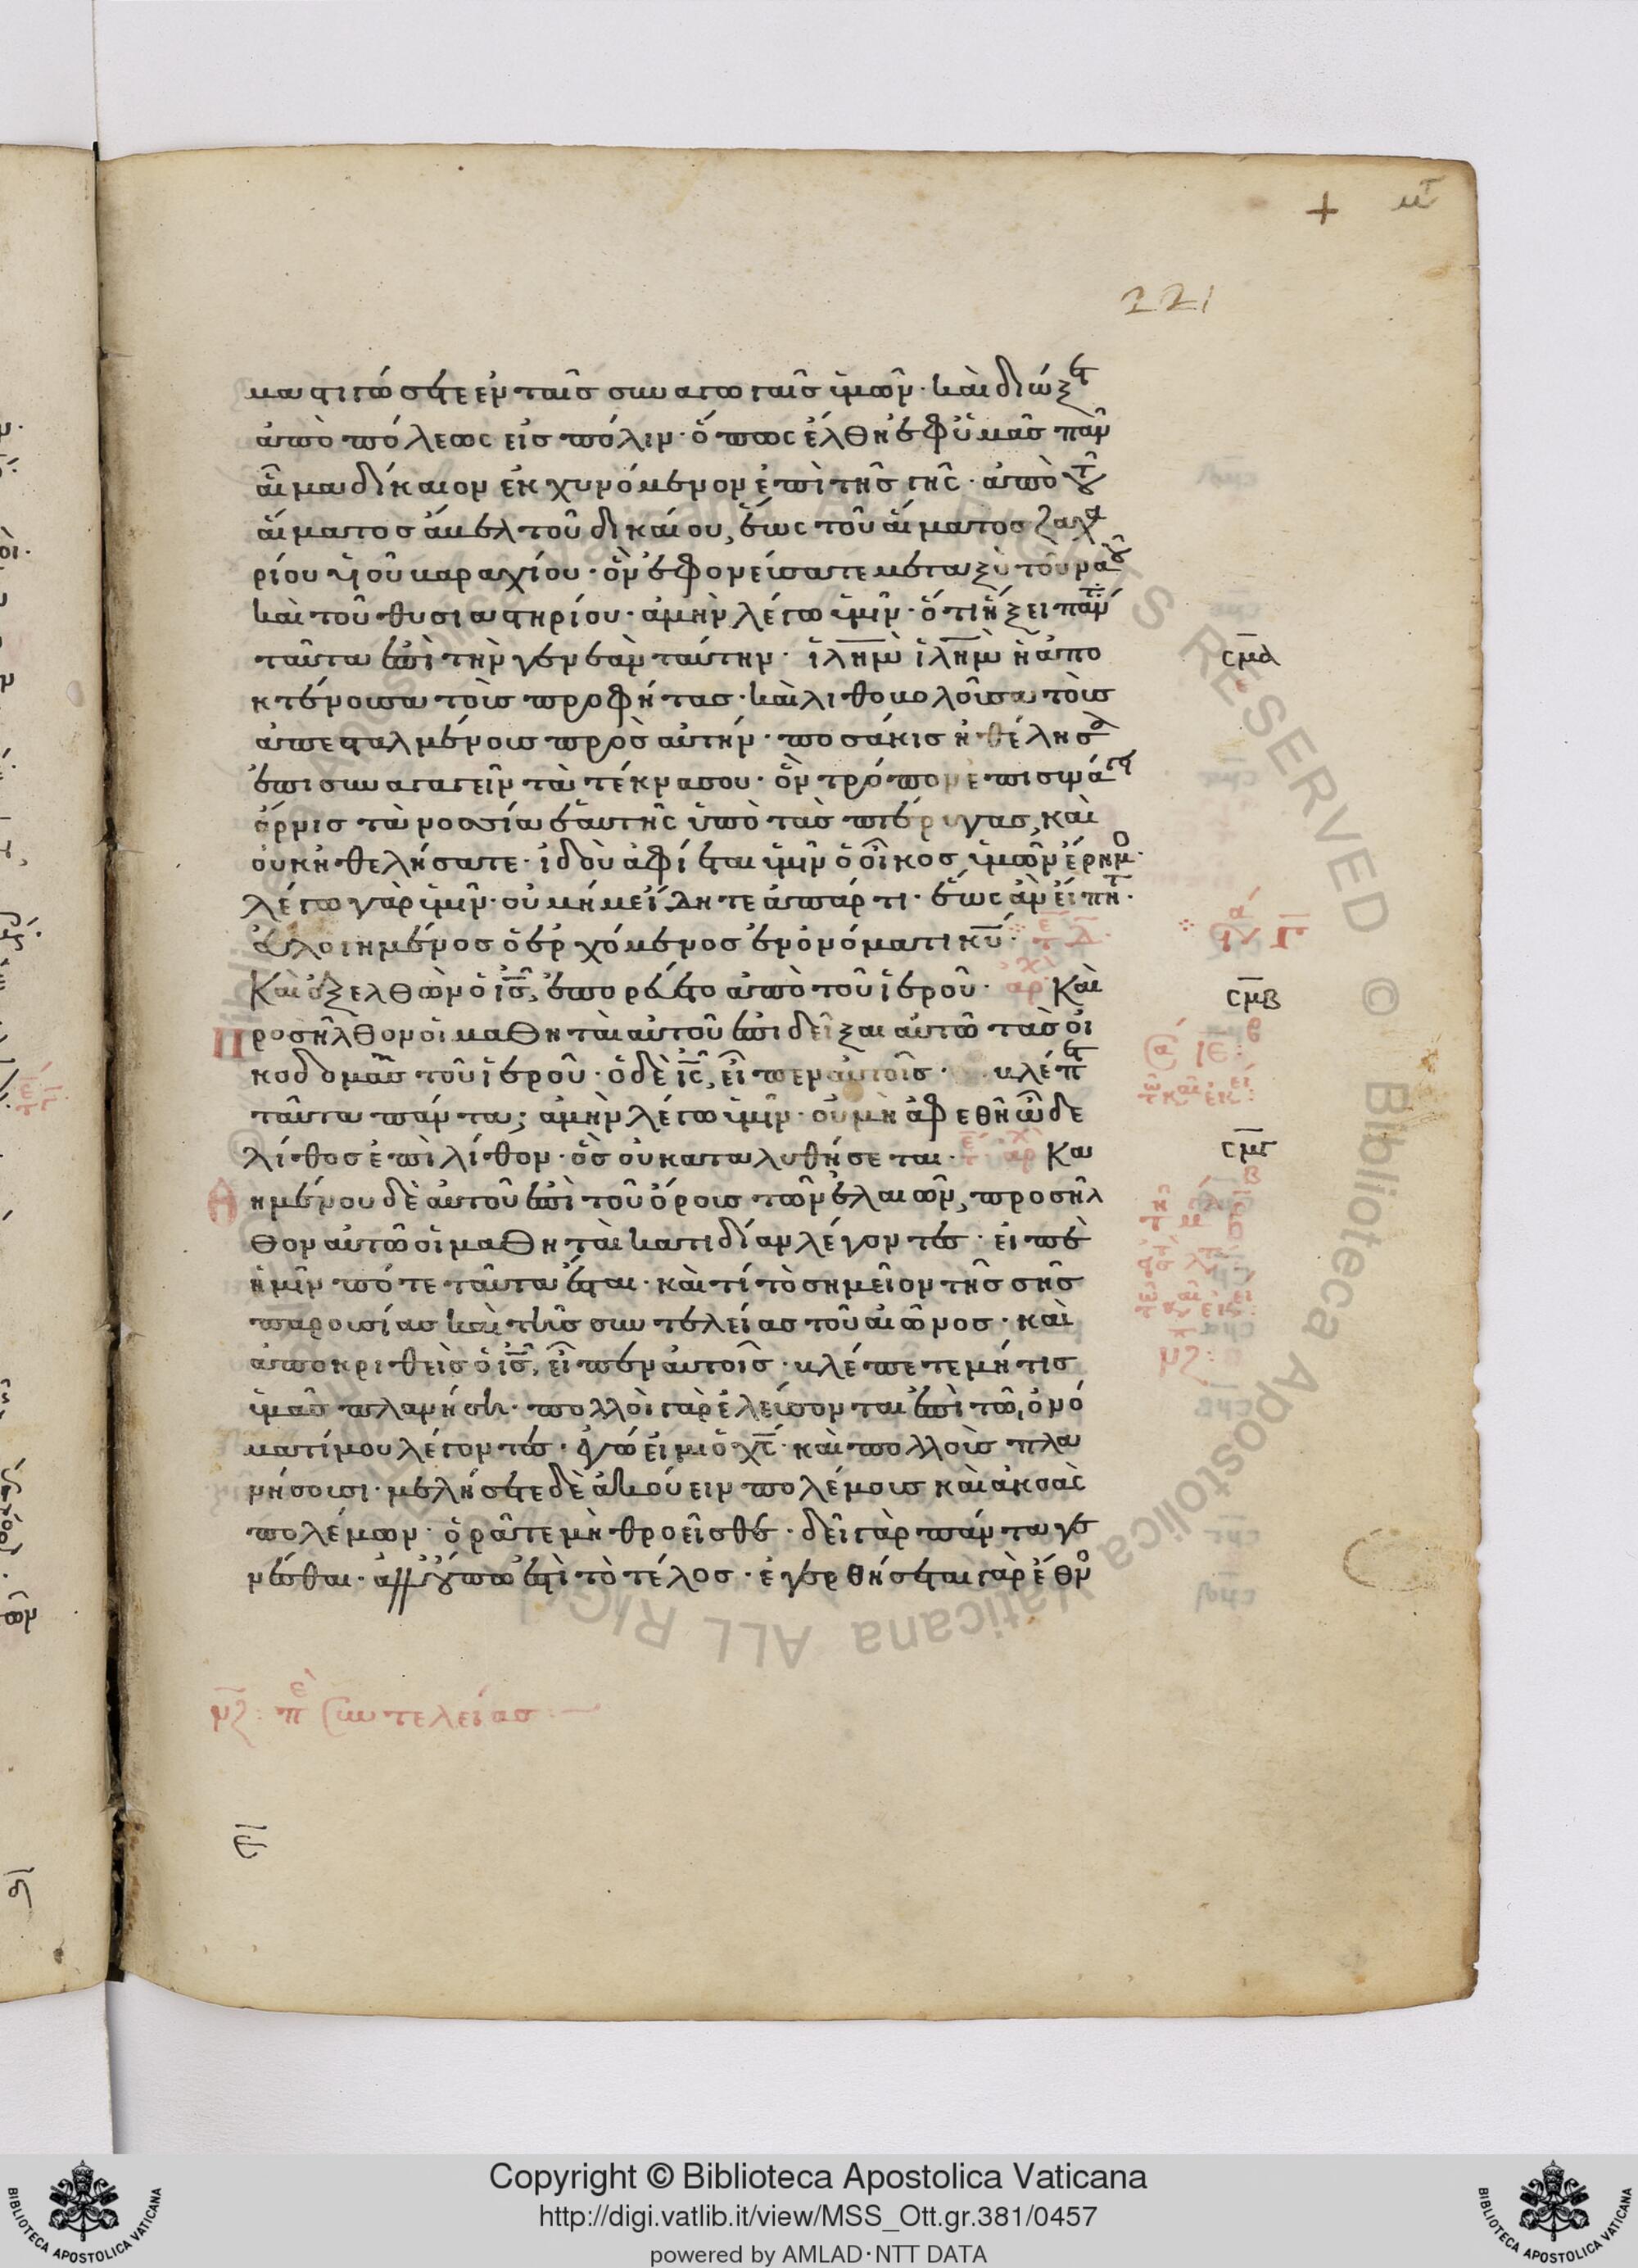 +
221
μαστιγώσετε ἐν ταῖς συναγωγαῖς ὑμῶν· καὶ διώξετε
ἀπὸ πόλεως εἰς πόλιν· ὅπως ἔλθη ἐφ ὑμᾶς πᾶν
αἷμα δίκαιον ἐκχυνόμενον ἐπὶ τῆς γῆς· ἀπὸ τοῦ
αἵματος ἄβελ τοῦ δικαίου, ἕως τοῦ αἵματος ζαχα
ρίου υἱοῦ βαραχίου· ὃν ἐφονεύσατε μεταξὺ τοῦ ναοῦ
καὶ τοῦ θυσιαστηρίου· ἀμὴν λέγω ὑμῖν· ὅτι ἥξει πάντα
ταῦτα ἐπὶ τὴν γενεὰν ταύτην· ἱλημ ἱλημ ἡ ἀπο
κτένουσα τοὺς προφήτας· καὶ λιθοβολοῦσα τοὺς
ἀπεσταλμένους πρὸς αὐτήν· ποσάκις ἠθέλησα
ἐπισυναγαγεῖν τὰ τέκνα σου· ὃν τρόπον ἐπισυνάγει
ὄρνις τὰ νοσσία ἑαυτῆς ὑπὸ τὰς πτέρυγας, καὶ
οὐκ ἠθελήσατε· ἰδοὺ ἀφίεται ὑμῖν ὁ οἶκος ὑμῶν ἔρημος·
λέγω γὰρ ὑμῖν· οὐ μή με ἴδητε ἀπάρτι· ἕως ἂν εἴπητε·
εὐλογημένος ὁ ἐρχόμενος ἐν ὀνόματι κυ·
Καὶ ἐξελθὼν ὁ ις, ἐπορεύετο ἀπὸ τοῦ ἱεροῦ· Καὶ
Προσῆλθον οἱ μαθηταὶ αὐτοῦ ἐπιδεῖξαι αὐτῶ τὰς οἰ
κοδομὰς τοῦ ἱεροῦ· ὁ δὲ ις, εἶπεν αὐτοῖς· βλέπετε
ταῦτα πάντα; ἀμὴν λέγω ὑμῖν· οὐ μὴ ἀφεθῆ ὧδε
λίθος ἐπὶ λίθον· ὃς οὐ καταλυθήσεται· Κα
ημένου δὲ αὐτοῦ ἐπὶ τοῦ ὄρους τῶν ἐλαιῶν, προσῆλ
θον αὐτῶ οἱ μαθηταὶ κατιδίαν λέγοντες· εἰπὲ
ἡμῖν πότε ταῦτα ἔσται· καὶ τί τὸ σημεῖον τῆς σῆς
παρουσίας καὶ τῆς συντελείας τοῦ αἰῶνος· καὶ
ἀποκριθεὶς ὁ ις, εἶπεν αὐτοῖς· βλέπετε μή τις
ὑμᾶς πλανήση· πολλοὶ γὰρ ἐλεύσονται ἐπὶ τῶ, ὀνό
ματί μου λέγοντες· ἐγώ εἰμι ὁ χς· καὶ πολλοὺς πλα
νήσουσι· μελήσετε δὲ ἀκούειν πολέμους καὶ ἀκοὰς
πολέμων· ὁρᾶτε μὴ θροεῖσθε· δεῖ γὰρ πάντα γε
νέσθαι· ἀλλ οὔπω ἐστὶ τὸ τέλος· ἐγερθήσεται γὰρ ἔθνος
σμα
σμβ
σμγ
νζ: περὶ συντελείας
Copyright © Biblioteca Apostolica Vaticana
http://digi.vatlib.it/view/MSS_Ott.gr.381/0457
powered by AMLAD·NTT DATA
BIBLIOTECA APOSTOLICA VATICANA
BIBLIOTECA APOSTOLICA VATICANA